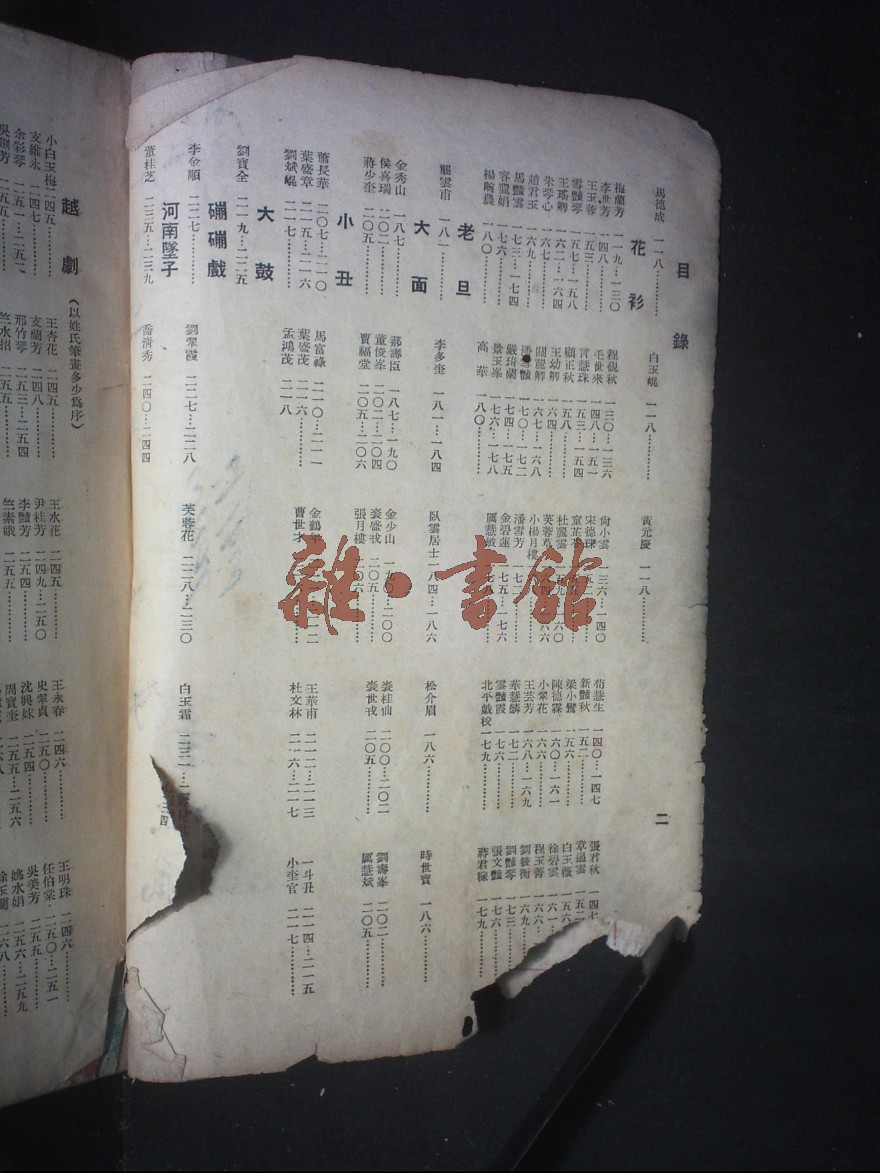 目錄　二
馬德成 一一八………… 白玉崑 一一八………… 黃元慶 一一八…………
花衫
梅蘭芳 一一九…一三〇 程硯秋 一三〇…一三六 尙小雲 一三六…一四〇 荀慧生 一四〇…一四七 張君秋 一四七
李世芳 一四八………… 毛世來 一四八…一五一 宋德珠 新豔秋 一五二………… 章遏雲 一五二
王玉蓉 一五三………… 言慧珠 一五三…一五四 童芷苓 梁小鸞 一五六………… 白玉薇 一五六
雪豔琴 一五七…一五八 顧正秋 一五八………… 杜麗雲 陳德霖 一六〇…一六一 徐碧雲 一六一
王瑤卿 一六二…一六四 王幼卿 一六四………… 芙蓉草 小翠花 一六六………… 程玉菁 一六六
朱琴心 一六七………… 一六七…一六八 小楊月樓 王芸芳 一六八…一六九 劉筱衡 一六九
趙君玉 一六九………… 一七〇…一七二 潘雪芳 一七二 華慧麟 一七二………… 劉豔琴 一七三
馬豔雲 一七三…一七四 嚴琦蘭 一七四…一七五 金碧蓮 一七五…一七六 雲豔霞 一七六………… 張文豔 一七六
容麗娟 一七六………… 景玉峯 一七六…一七八 厲慧敏 北平戲校 一七九………… 蔣君稼 一七九
楊畹農 一八〇………… 高華 一八〇…………
老旦
龔雲甫 一八一………… 李多奎 一八一…一八四 臥雲居士 一八四…一八六 松介眉 一八六………… 時世寶 一八六…………
大面
金秀山 一八七………… 郝壽臣 一八七…一九〇 金少山 一九〇…二〇〇 裘桂仙 二〇〇…二〇二 劉壽峯 二〇二…………
侯喜瑞 二〇二………… 董俊峯 二〇二…二〇四 裘盛戎 二〇五………… 裘世戎 二〇五………… 厲慧斌 二〇五…………
蔣少奎 二〇五………… 賈福堂 二〇五…二〇六 張月樓 二〇六…………
小丑
蕭長華 二〇七…二一〇 馬富祿 二一〇…二一一 金鶴年 王華甫 二一二…二一三 一斗丑 二一四…二一五
葉盛章 二一五…二一六 葉盛茂 二一六………… 曹世才 杜文林 二一六…二一七 小奎官 二一七…………
劉斌崑 二一七………… 孟鴻茂 二一八
大鼓
劉寶全 二一九…二二五
磞磞戲
李金順 二二七………… 劉翠霞 二二七…二二八 芙蓉花 二二八…二三〇 白玉霜 二三一…
河南墜子
董桂芝 二三五…二三九 喬清秀 二四〇…二四四
越劇（以姓氏筆畫多少爲序）
小白玉梅 二四五………… 王杏花 二四五………… 王水花 二四五………… 王永春 二四六………… 王明珠 二四六…………
支維永 二四七………… 支蘭芳 二四八………… 尹桂芳 二四九…二五〇 史翠貞 二五〇………… 任伯棠 二五〇…二五一
余彩琴 二五一…二五二 邢竹琴 二五三…二五四 李豔芳 二五四………… 沈興妹 二五四………… 吳美芳 二五五…………
二五五 竺水招 二五五………… 竺素娥 二五五………… 周寶奎 二五五…二五六 姚水娟 二五六…二五九
徐玉蘭
雜·書館